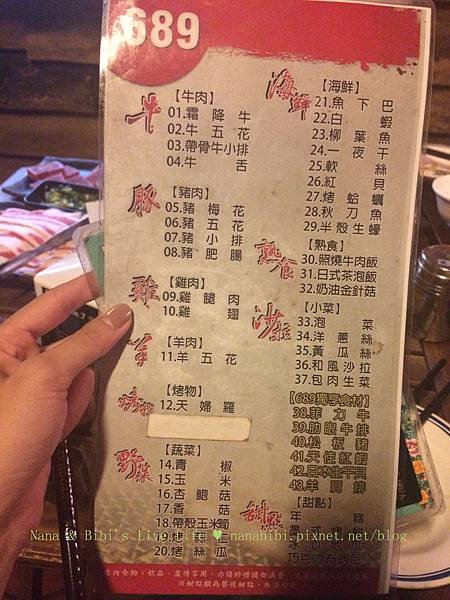 689
牛
【牛肉】
01.霜降牛
02.牛五花
03.帶骨牛小排
04.牛舌
豚
【豬肉】
05.豬梅花
06.豬五花
07.豬小排
08.豬肥腸
雞
【雞肉】
09.雞腿肉
10.雞翅
羊
【羊肉】
11.羊五花
烤物
【烤物】
12.天婦羅
野菜
【蔬菜】
14.青椒
15.玉米
16.杏鮑菇
17.香菇
18.帶殼玉米筍
20.烤絲瓜
海鮮
【海鮮】
21.魚下巴
22.白蝦
23.柳葉魚
24.一夜干
25.軟絲
26.紅貝
27.烤蛤蠣
28.秋刀魚
29.半殼生蠔
熟食
【熟食】
30.照燒牛肉飯
31.日式茶泡飯
32.奶油金針菇
沙拉
【小菜】
33.泡菜
34.洋蔥絲
35.黃瓜絲
36.和風沙拉
37.包肉生菜
【689獨享食材】
38.菲力牛
39.肋眼牛排
40.松板豬
41.天使紅蝦
42.日本生干貝
43.羊肩排
甜點
【甜點】
年糕
Nana & Bibi's Live Life ♥ nanabibi.pixnet.net/blog